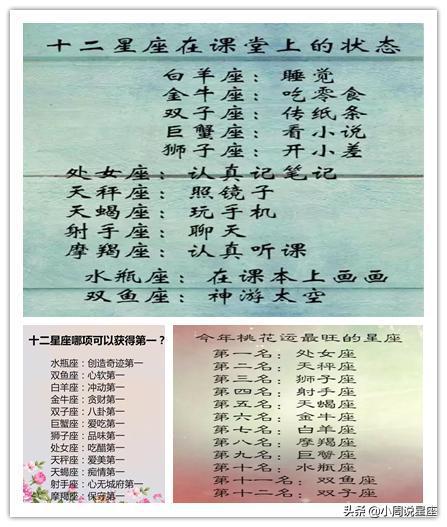 十二星座在课堂上的状态
白羊座：睡觉
金牛座：吃零食
双子座：传纸条
巨蟹座：看小说
狮子座：开小差
处女座：认真记笔记
天秤座：照镜子
天蝎座：玩手机
射手座：聊天
摩羯座：认真听课
水瓶座：在课本上画画
双鱼座：神游太空
十二星座哪项可以获得第一？
水瓶座：创造奇迹第一
双鱼座：心软第一
白羊座：冲动第一
金牛座：贪财第一
双子座：八卦第一
巨蟹座：爱吃第一
狮子座：品味第一
处女座：吃醋第一
天秤座：爱美第一
天蝎座：痴情第一
射手座：心无城府第一
摩羯座：保守第一
今年桃花运最旺的星座
第一名：处女座
第二名：天秤座
第三名：狮子座
第四名：射手座
第五名：天蝎座
第六名：金牛座
第七名：白羊座
第八名：摩羯座
第九名：巨蟹座
第十名：水瓶座
第十一名：双鱼座
第十二名：双子座
头条@小周说星座